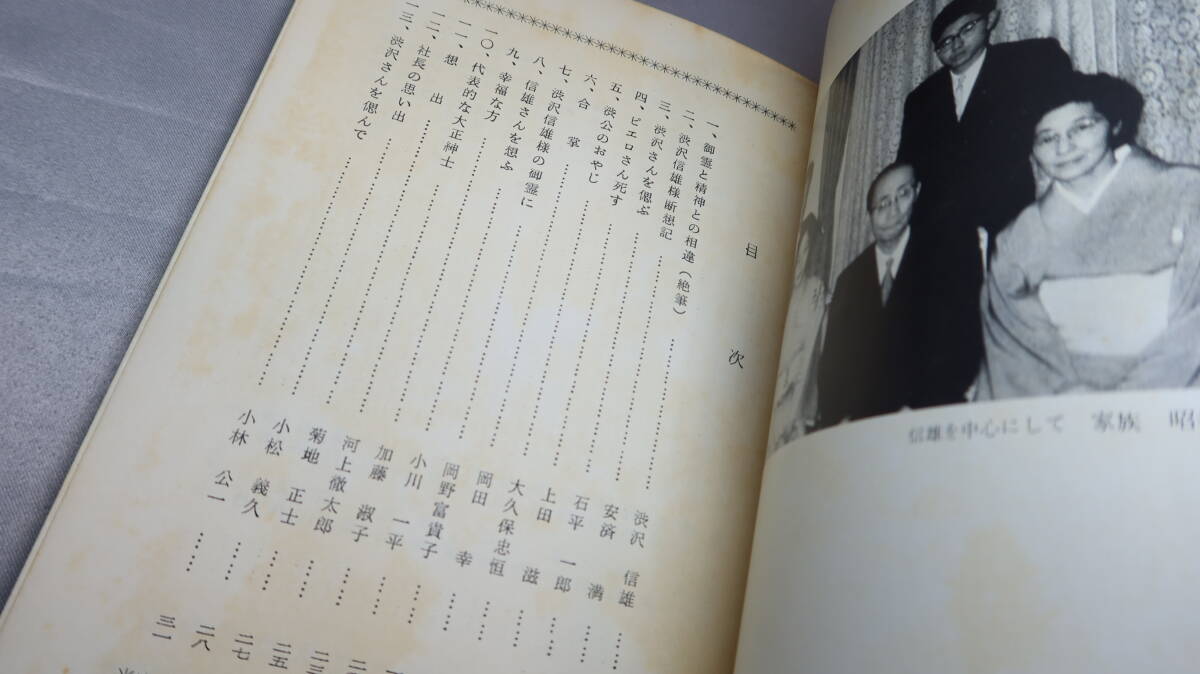 目次
一、御霊と精神との相違（絶筆）…… 渋沢信雄……
二、渋沢信雄様断想記…… 安済満……
三、渋沢さんを偲ぶ…… 石平一郎……
四、ピエロさん死す…… 上田滋……
五、渋公のおやじ…… 大久保忠恒……
六、合掌…… 岡田幸……
七、渋沢信雄様の御霊に…… 岡野富貴子……
八、信雄さんを想ふ…… 小川一平……
九、幸福な方…… 加藤淑子……
一〇、代表的な大正紳士…… 河上徹太郎……
一一、想出…… 菊地正士…… 二五
一二、社長の思い出…… 小松義久…… 二七
一三、渋沢さんを偲んで…… 小林公一…… 二八
三一
信雄を中心にして 家族 昭